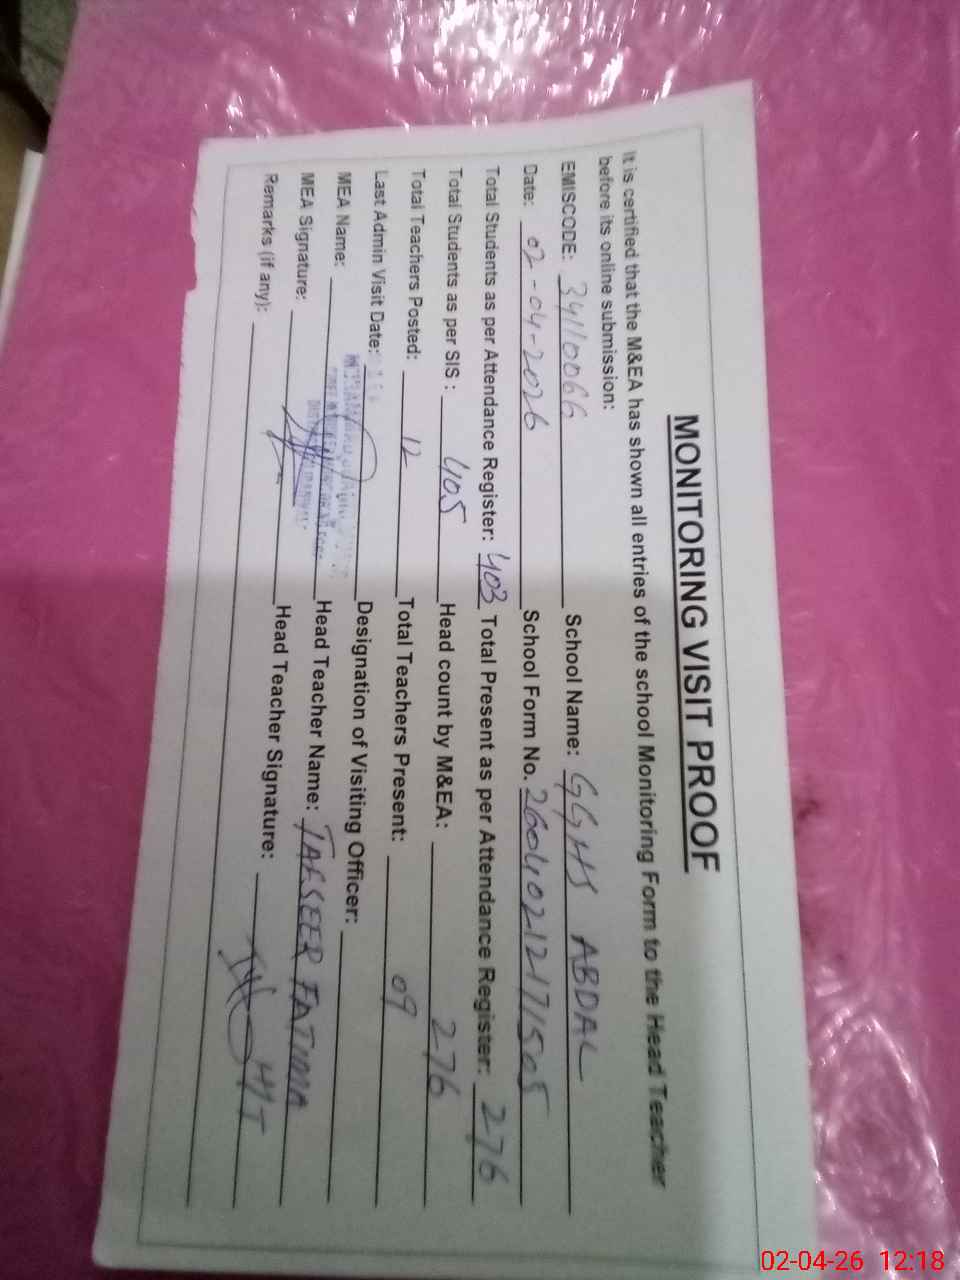 MONITORING VISIT PROOF
It is certified that the M&EA has shown all entries of the school Monitoring Form to the Head Teacher
before its online submission:
EMISCODE: 34110066 School Name: GGHS ABDAL
Date: 02-04-2026 School Form No. 26040212171505
Total Students as per Attendance Register: 403 Total Present as per Attendance Register: 276
Total Students as per SIS : 405 Head count by M&EA: 276
Total Teachers Posted: 12 Total Teachers Present: 09
Last Admin Visit Date: Designation of Visiting Officer:
MEA Name: Head Teacher Name: TAFSEER FATIMA
MEA Signature: Head Teacher Signature: H/T
Remarks (if any):
02-04-26 12:18